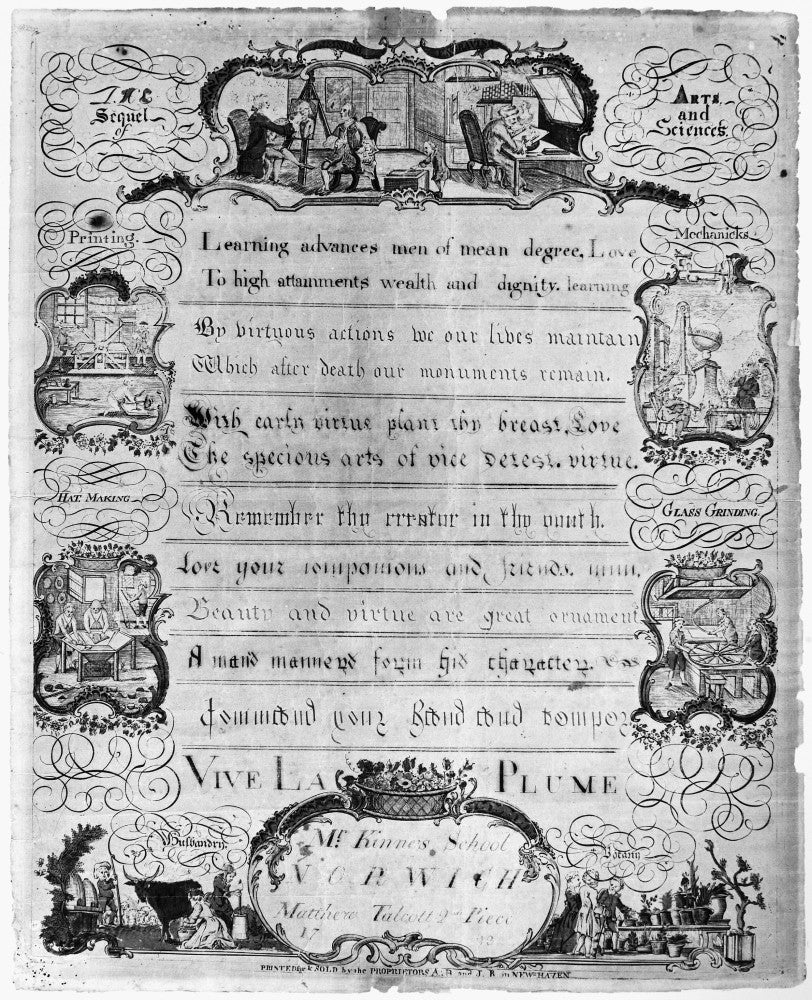 THE
Sequel
of
ARTS
and
Sciences
Printing.
Mechanicks
Learning advances men of mean degree, Love
To high attainments wealth and dignity. learning
By virtuous actions we our lives maintain
Which after death our monuments remain.
With early virtue plant thy breast, Love
The specious arts of vice detest. virtue.
HAT MAKING
GLASS GRINDING
Remember thy creator in thy youth.
Love your companions and friends.
Beauty and virtue are great ornament
A mans manners form his character.
Commend your
VIVE LA PLUME
Husbandry.
Botany
Mr Kinnes School
NORWICH
Matthew Talcott 2nd Piece
17
PRINTED for & SOLD by the PROPRIETORS A. D and J. B in NEW-HAVEN